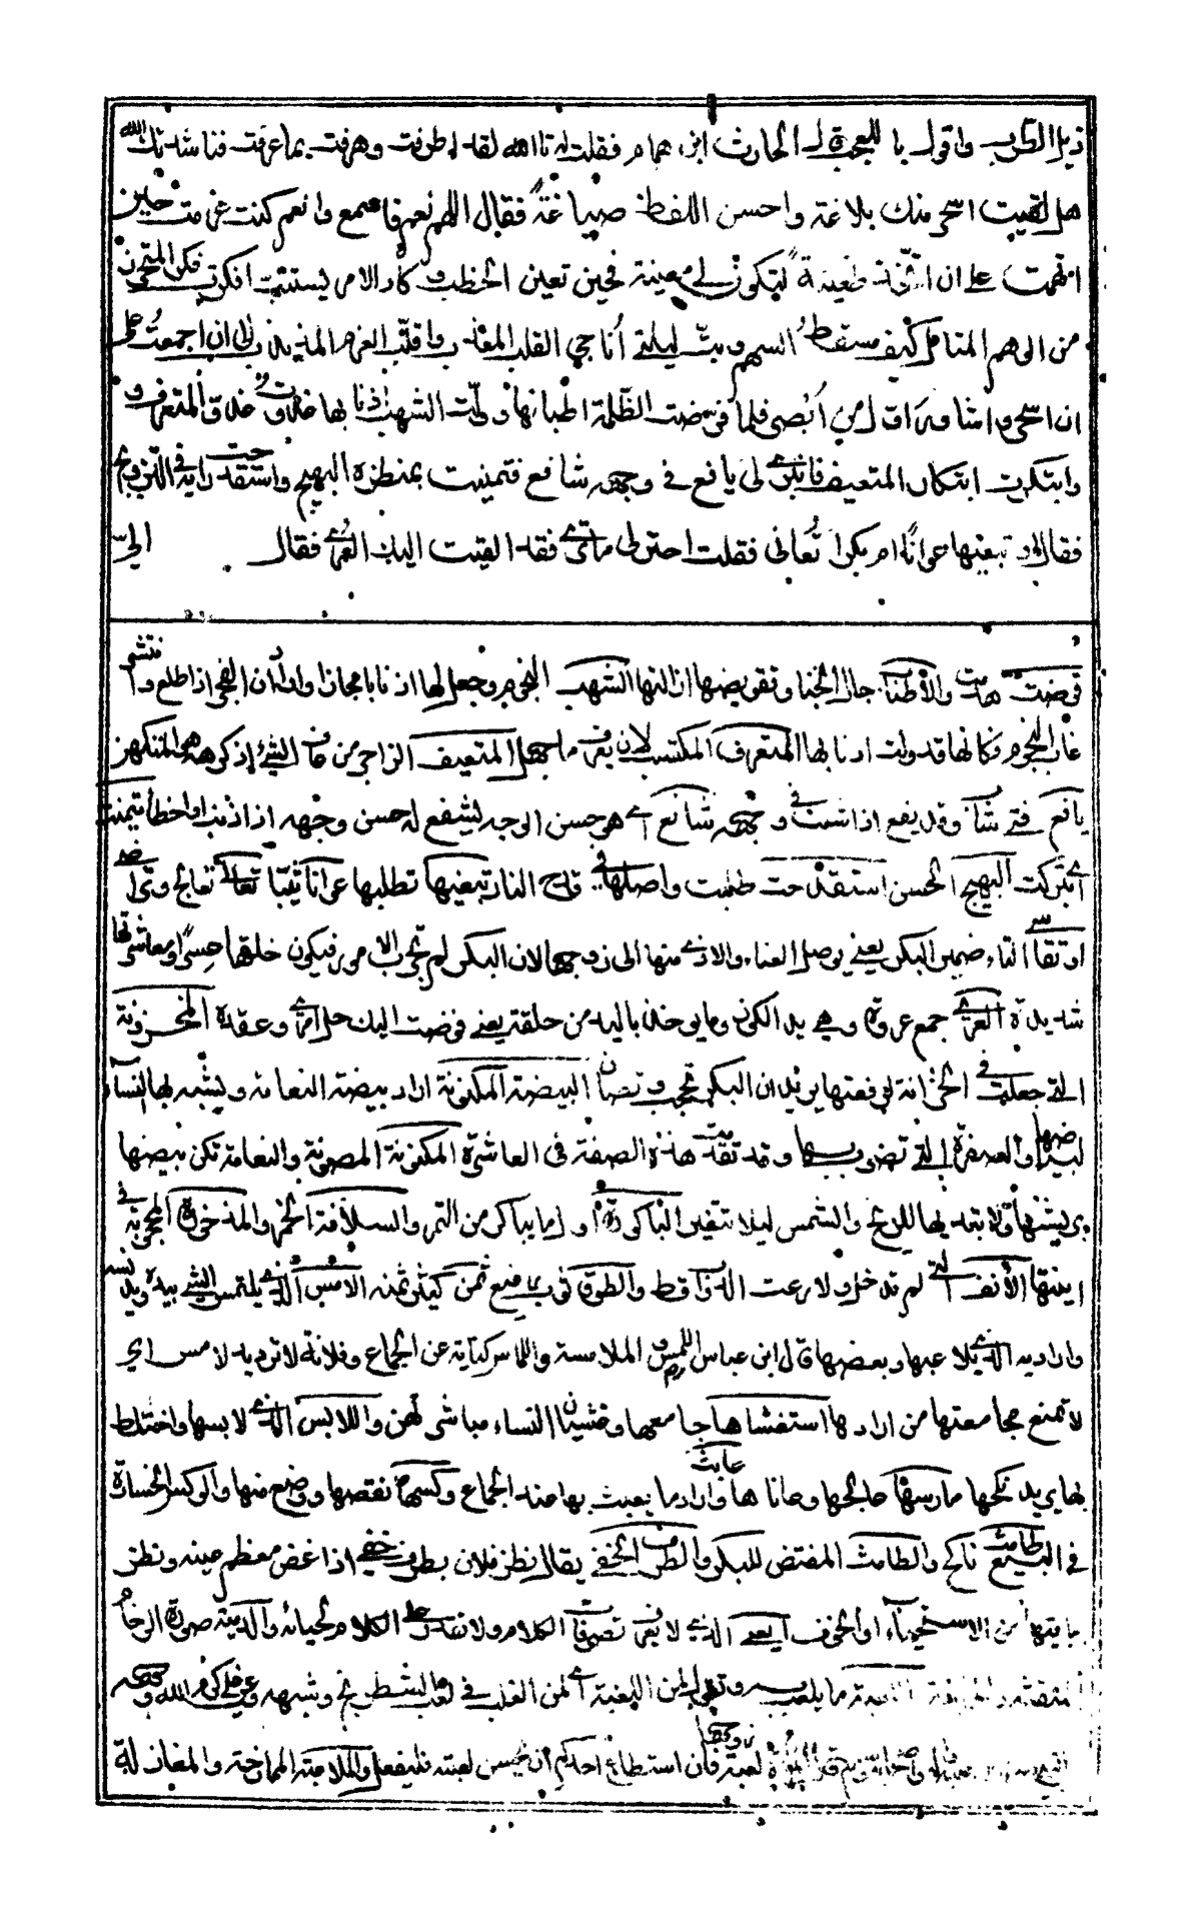 ذيل الطرب واقول يا للعجب قال الحارث ابن همام فقلت له تا الله لقد اطرفت وهرفت بما عرفت فناشدتك الله
هل لقيت اسحر منك بلاغة واحسن اللفظ صياغة فقال اللهم نعم فاسمع وانعم كنت عزمت حين
اتهمت على ان اتخذ ظعينة لتكون لي معينة فحين تعين الخطب وكاد الامر يستتب افكرت فكر المتحرز
من الوهم المتامل كيف مسقط السهم وبت ليلتي أناجي القلب المعذب واقلب العزم المذبذب الى ان اجمعت على
ان اسحر واشاور اول من ابصر فلما قوضت الظلمة اطنابها وولت الشهب اذنابها غدوت غدو المتعرف و
وابتكرت ابتكار المتعيف فانبرى لى يافع في وجهه شافع فتيمنت بمنظره البهيج واستقدحت رايه في التزويج
فقال او تبغيها عوانا ام بكرا تعانى فقلت اختر لى ما ترى فقد القيت اليك العرى فقال الىّ
قوضت هدمت والأطناب حبال الخبا وتقويضها ازالتها الشهب النجوم وجعل لها اذنابا مجازا واراد ان الفجر اذا طلع وانتشر
غاب النجوم فكانها قد ولت اذنابها المتعرف المكتسب لان يعرف ما يجهل المتعيف الزاجر من عاف الشئ إذ كرهه المتكهن
يافع فتى شاب وقد يفع اذا شب في وجهه شافع اے هو حسن الوجه ليشفع له حسن وجهه اذا اذنب او اخطأ تيمنت
اے تبركت البهيج الحسن استقدحت طلبت واصلها في قدح النار تبغيها تطلبها عوانا ثيبا تعانى تعالج وترى
او تقاسے التاء ضمير البكر يعني يوصل العناء والاذى منها الى زوجها لان البكر لم تجرب الامور فيكون خلقها حسنا ومعاشرتها
شديدة العرى جمع عروة وهي يد الكوز وما يوخذ باليد من حلقة يعني فوضت اليك حل امرى وعقده المخزونة
التي جعلت في الخزانة لرفعتها يريد ان البكر تحجب وتصان البيضة المكنونة اراد بيضة النعامة ويشبه بها النساء
لبياضها والصفرة التي تضرب بها وقد تقدمت هذه الصفة فى العاشرة المكنونة المصونة والنعامة تكن بيضها
بريشها ولا تبديها للريح والشمس ليلا تتغير الباكورة اول ما يباكر من الثمر والسلافة الخمر والمدخرة المخبوة في
اينتها الأنف التي لم تدخل ولا رعت الذواقط والطوق ثوب رفيع ثمن كيثر ثمنه اللامس الذي يلتمس الشے بيده ويدنسه
واراد به الذے يلاعبها وبعضها قال ابن عباس اللمس والملامسة واللماس كناية عن الجماع وفلانة لا ترد يد لامس اي
لا تمنع مجامعتها من ارادها استغشاها جامعها وغشيان النساء مباشرتهن واللابس الذے لابسها واختلط
بها يريد نكحها مارسها عالجها وعاناها عابث واراد ما يعبث بها عند الجماع وكسها نقصها ووضع منها والوكس الخسارة
في البيع طامث ناكح والطامث المفتض للبكر والطرف الخفي يقال نظر فلان بطرف خفي اذا غض معظم عينه ونظر
بايتها من الاستحياء او الخوف العيے الذے لا يعرف تصرفات الكلام ولا تقدر على الكلام لحيائه والدمية صورة الرخام
المنقشة اللعبة ما يلعب به وتقول لمن اللعبة اے لمن الغلب في لعب الشطرنج وشبهه وعن على كرم الله وجهه
لعبة زوجها فان استطاع احدكم ان يحسن لعبته فليفعل والملاعبة الممازحة والمغازلة